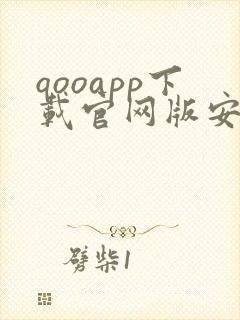 qooapp下
载官网版安
劈柴1